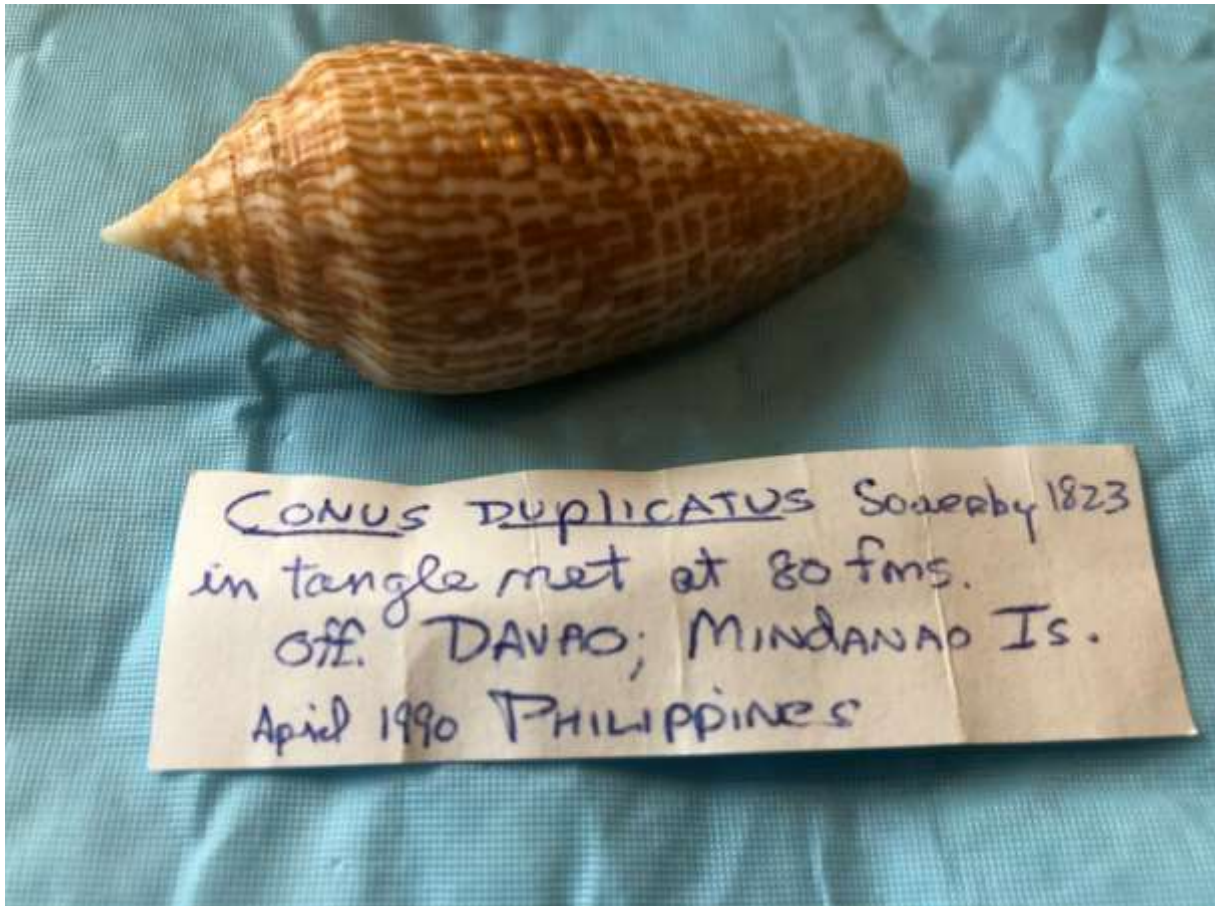 CONUS DUPLICATUS Sowerby 1823
in tangle net at 80 fms.
off. DAVAO; MINDANAO Is.
April 1990 PHILIPPINES